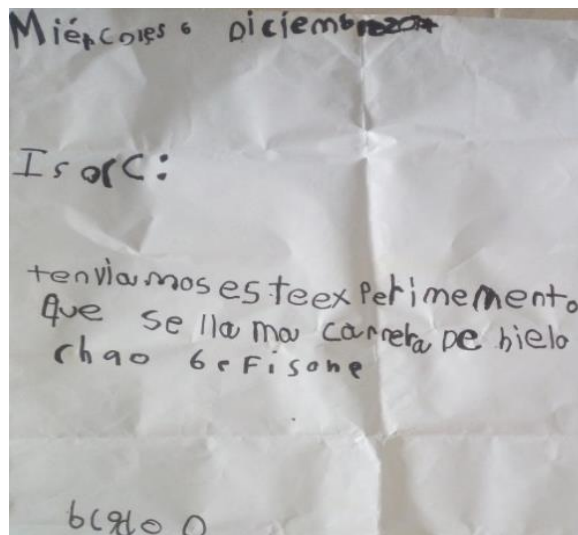 Miércoles 6 Diciembre 2017
Isac:
tenviamos este experimemento
que se llama carrera De hielo
chao